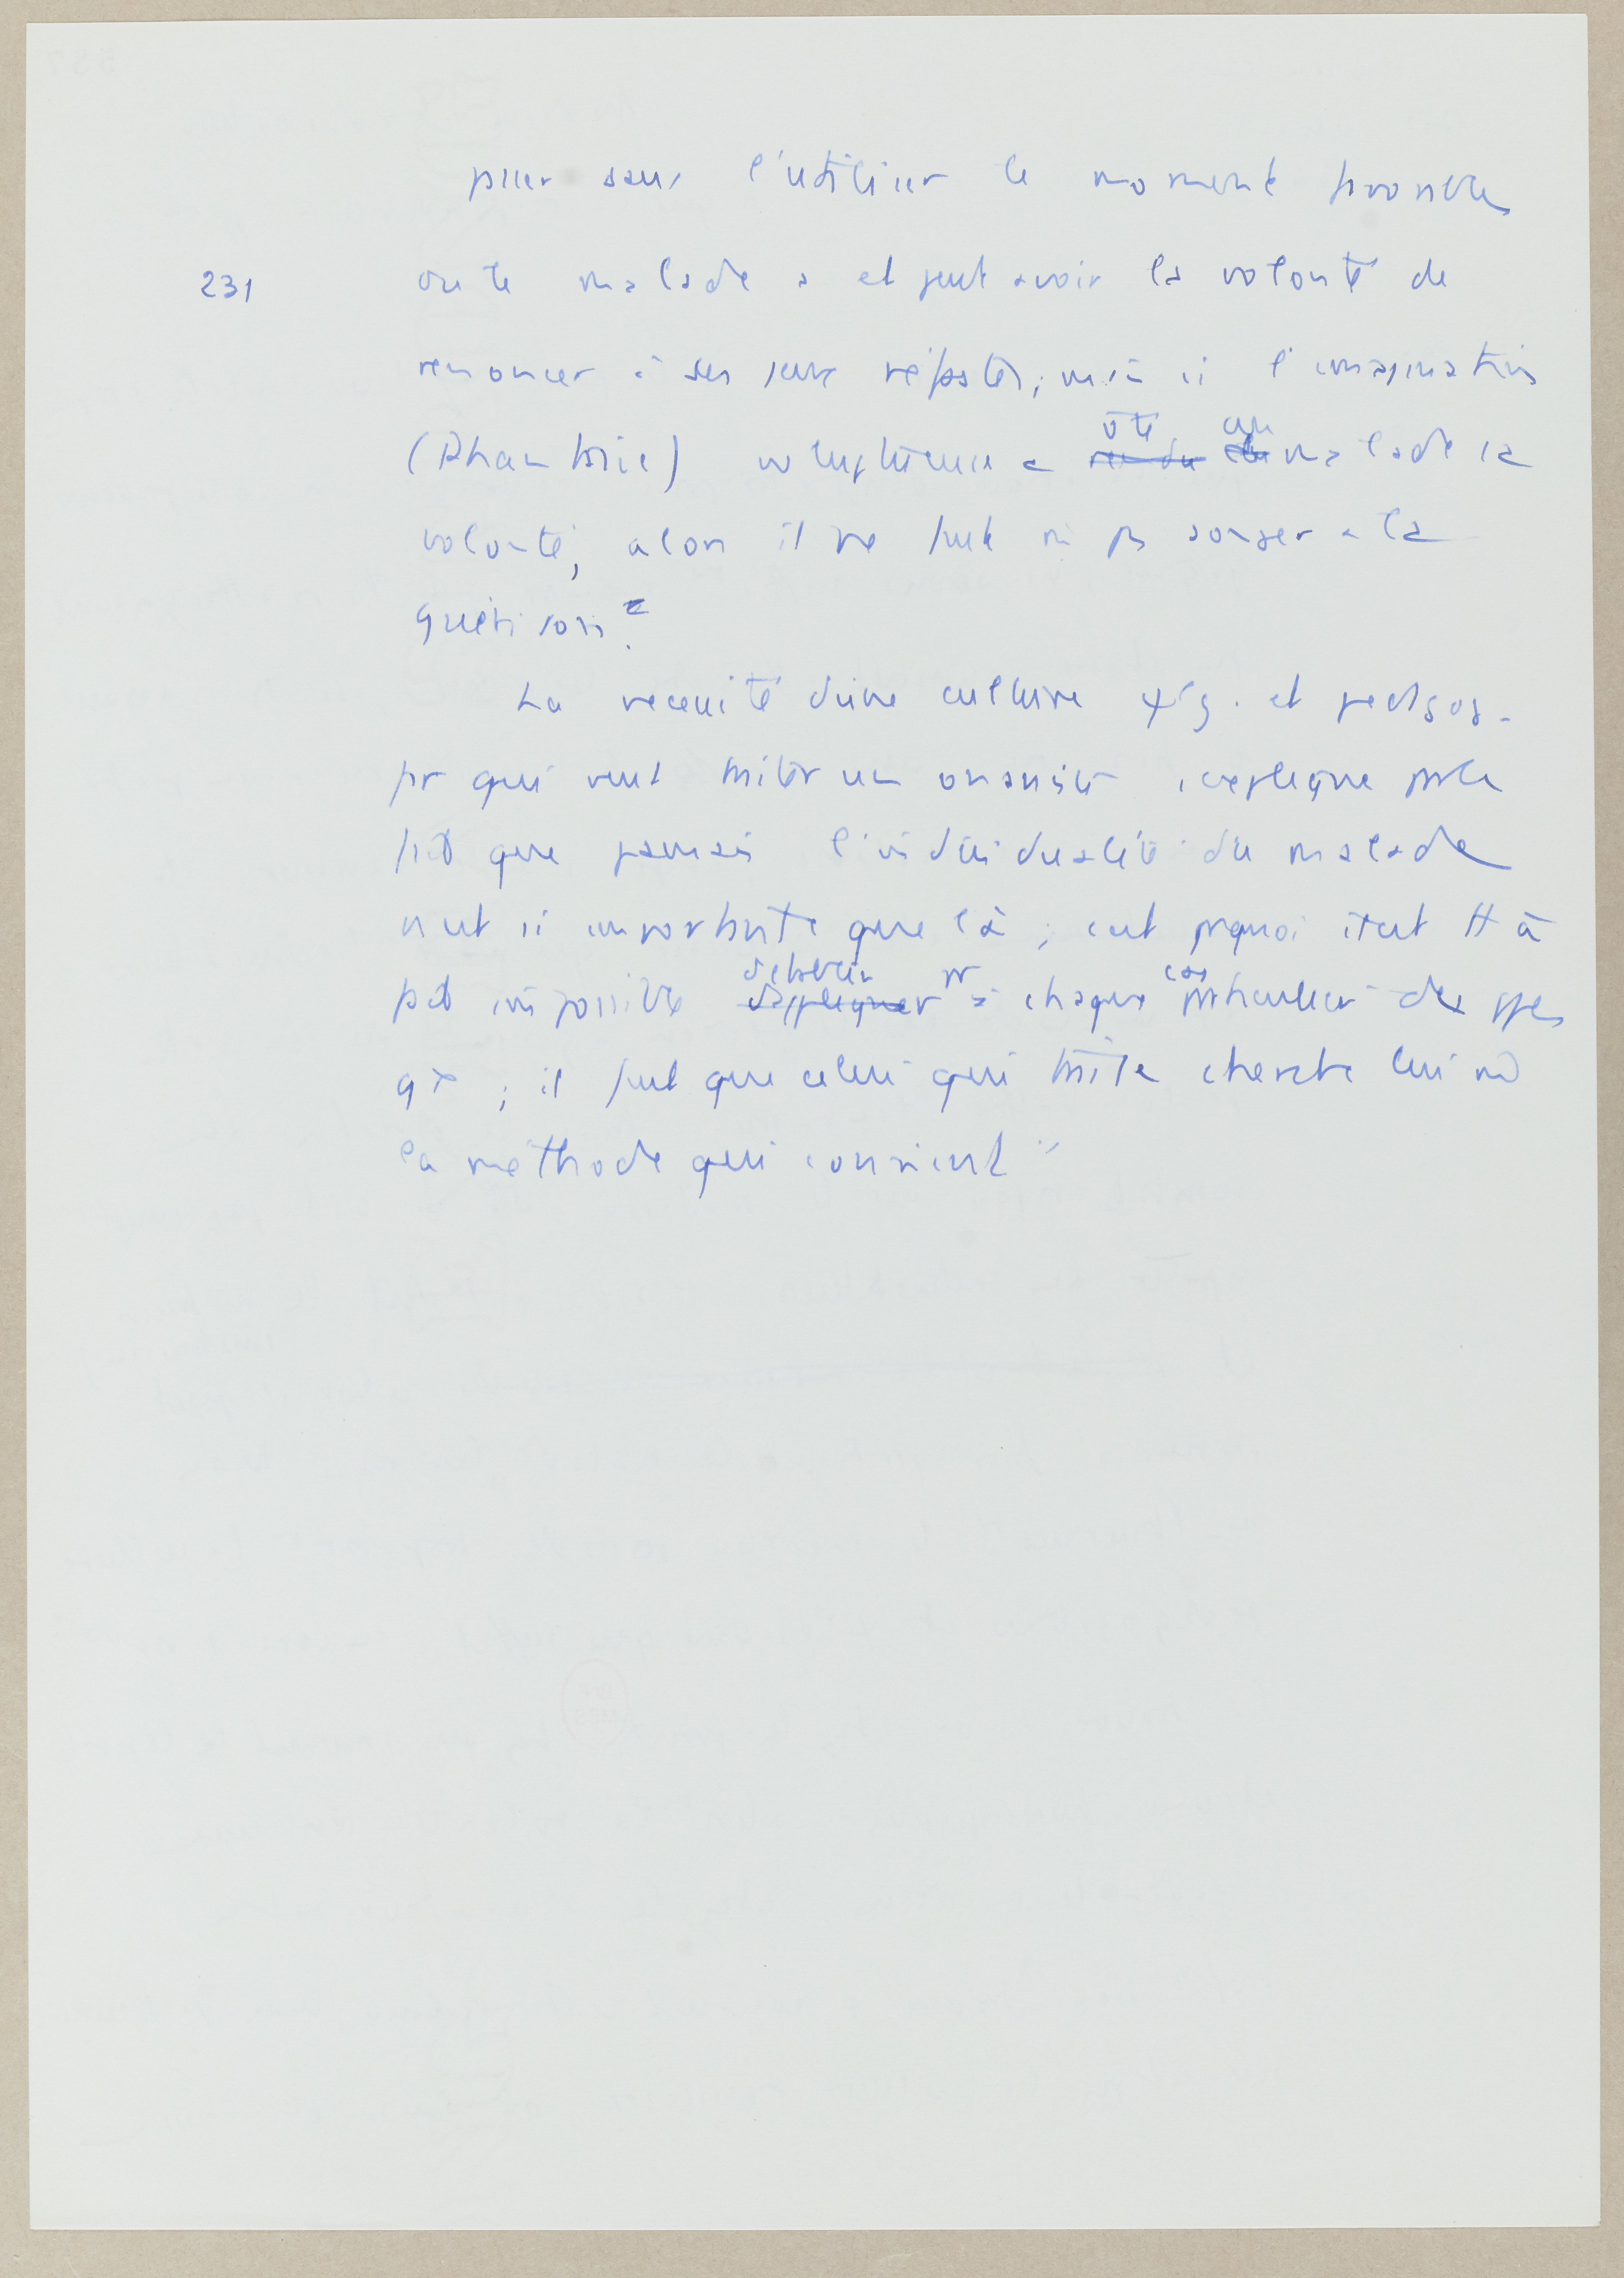 passer sans l'utiliser le moment favorable
231 où le malade a et peut avoir la volonté de
renoncer à ses jeux néfastes ; mais si l'imagination
(Phantasie) voluptueuse a ôté au malade sa
volonté, alors il ne faut ni pas songer à la
guérison.
La nécessité d'une culture ψg. et pedagog.
pr qui veut traiter un onaniste s'explique par le
fait que jamais l'individualité du malade
n'est si importante que là ; c'est pquoi il est tt à
fait impossible d'établir pr chaque cas particulier des
; il faut que celui qui traite cherche lui m̂
la méthode qui convient "